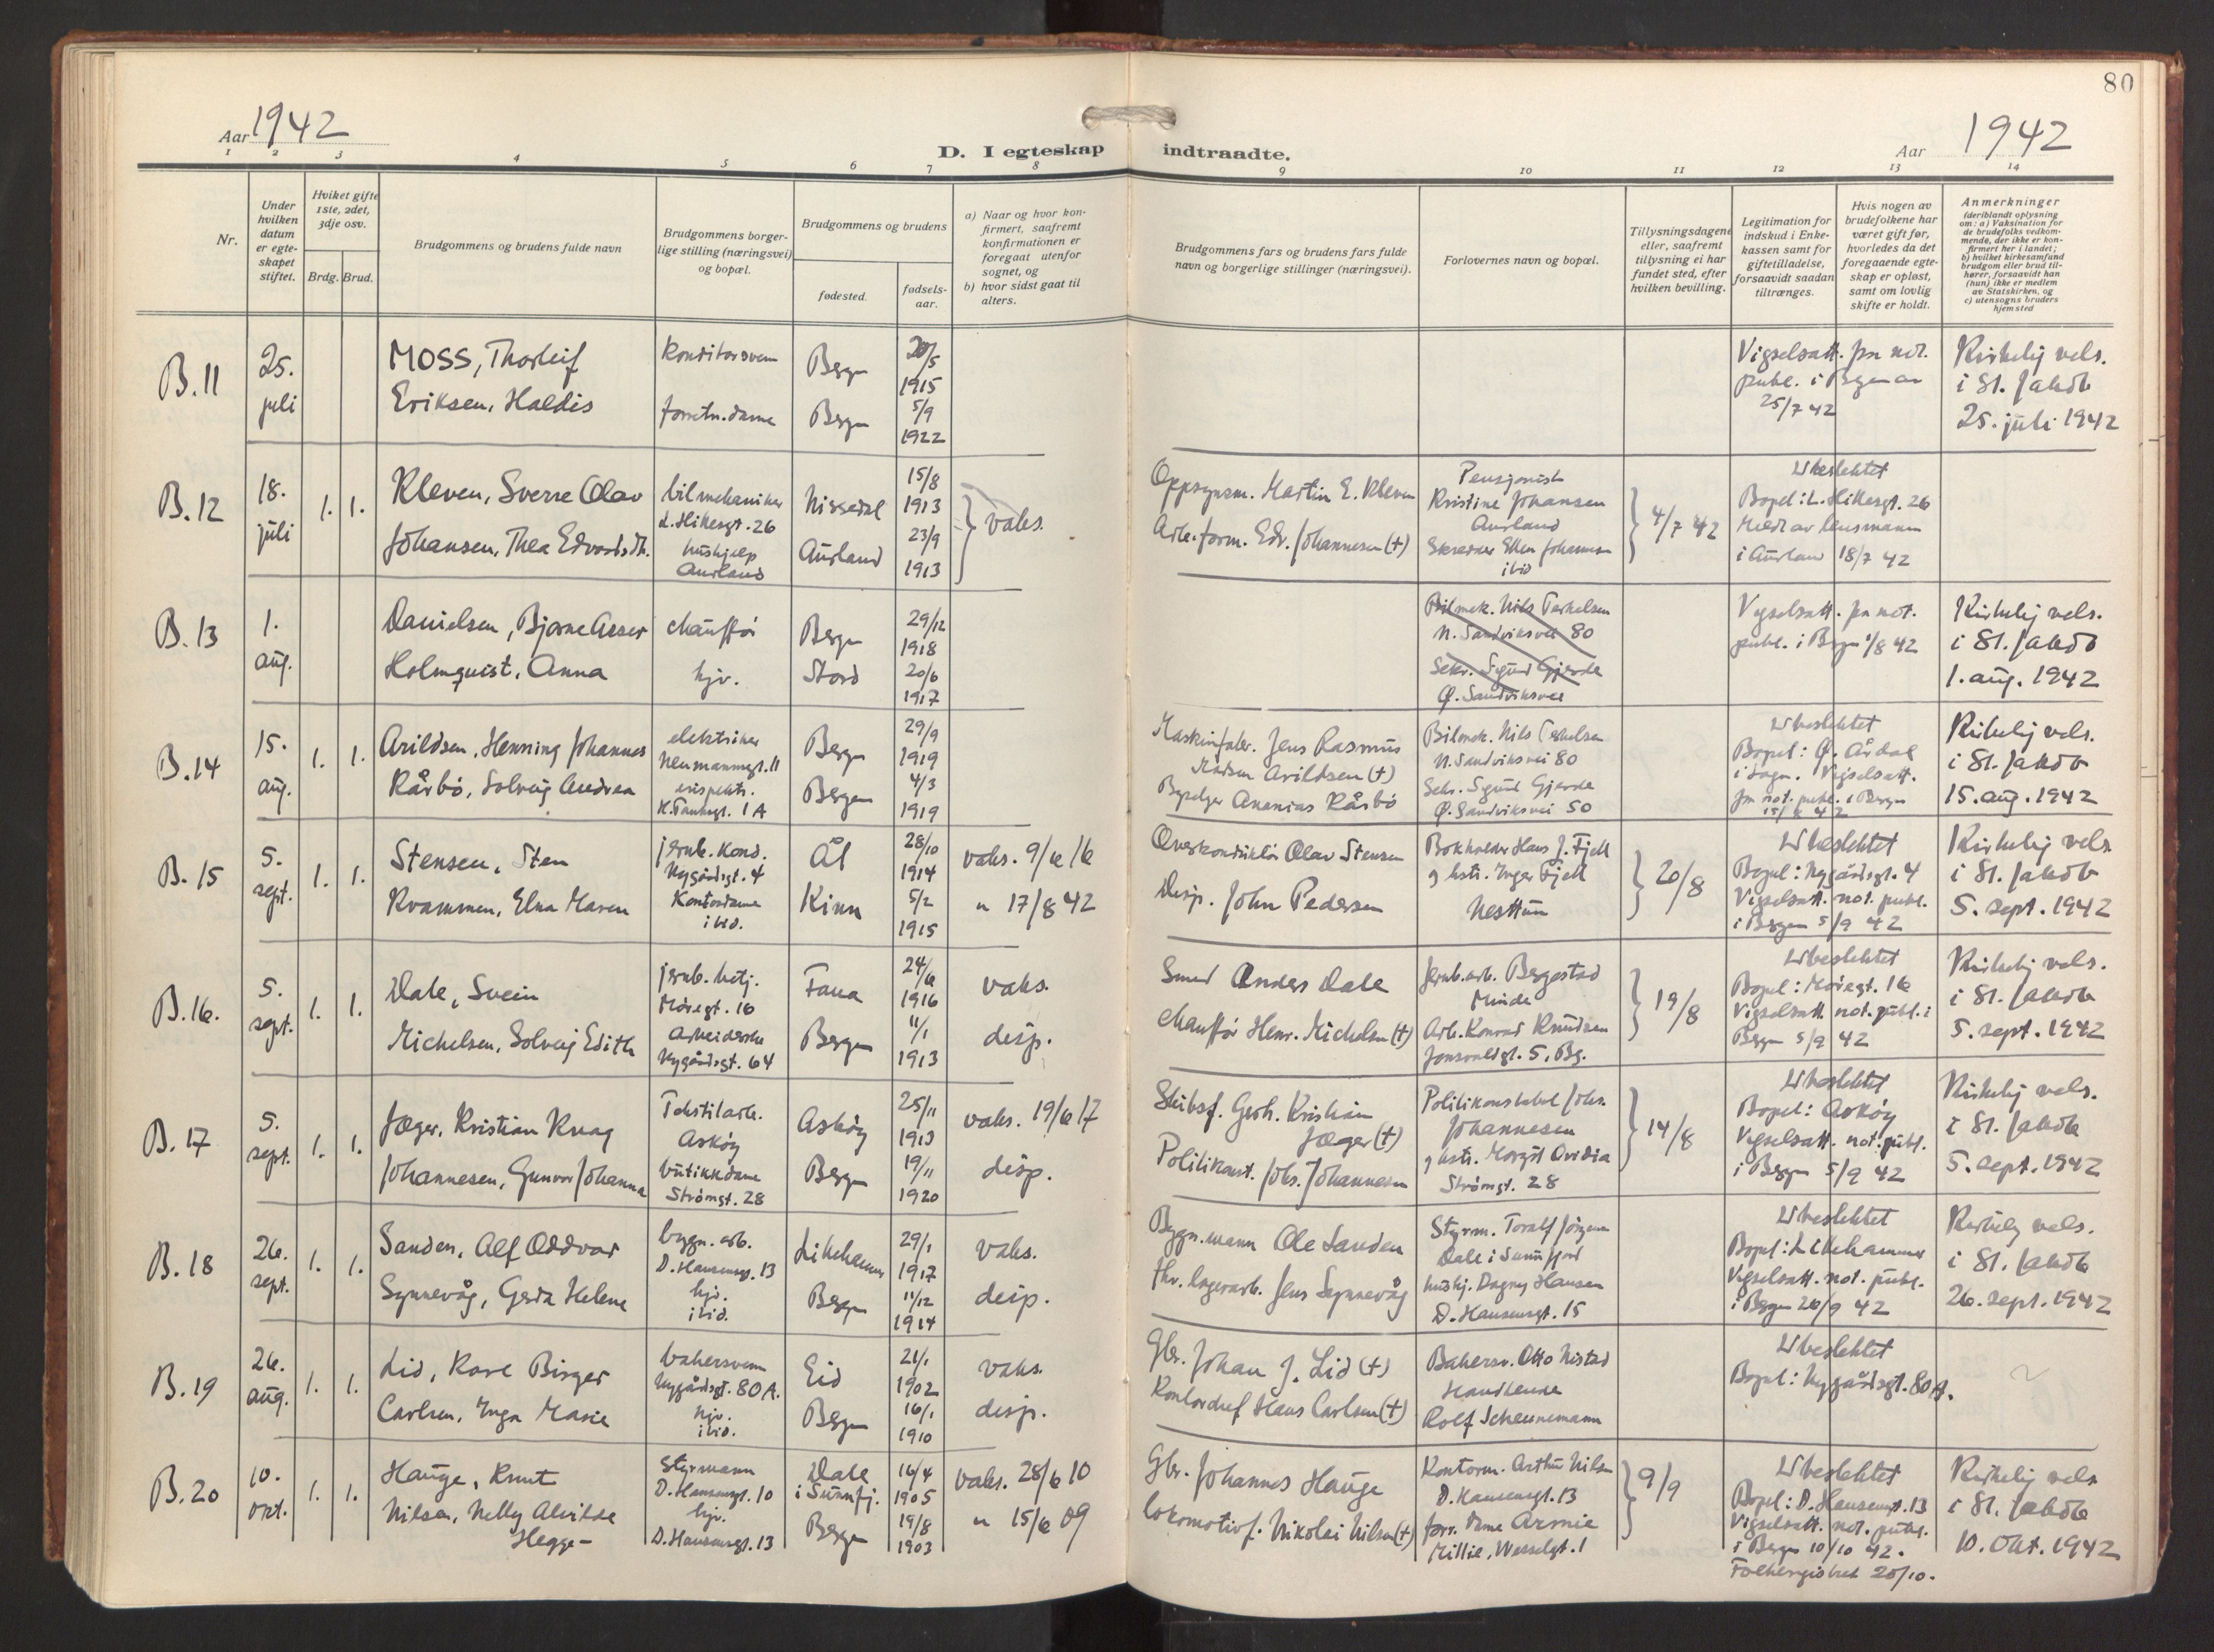 80
Aar 1942
D. I egteskap indtraadte.
Aar 1942
1 2 3 4 5 6 7 8 9 10 11 12 13 14
Nr.
Under
hvilken
datum
er egte-
skapet
stiftet.
Hviket gifte
1ste, 2det,
3dje osv.
Brdg. Brud.
Brudgommens og brudens fulde navn
Brudgommens borger-
lige stilling (næringsvei)
og bopæl.
Brudgommens og brudens
fødested.
fødsels-
aar.
a) Naar og hvor kon-
firmert, saafremt
konfirmationen er
foregaat utenfor
sognet, og
b) hvor sidst gaat til
alters.
Brudgommens fars og brudens fars fulde
navn og borgerlige stillinger (næringsvei).
Forlovernes navn og bopæl.
Tillysningsdagene
eller, saafremt
tillysning ei har
fundet sted, efter
hvilken bevilling.
Legitimation for
indskud i Enke-
kassen samt for
giftetilladelse,
forsaavidt saadan
tiltrænges.
Hvis nogen av
brudefolkene har
været gift før,
hvorledes da det
foregaaende egte-
skap er opløst,
samt om lovlig
skifte er holdt.
Anmerkninger
(deriblandt oplysning
om: a) Vaksination for
de brudefolks vedkom-
mende, der ikke er kon-
firmert her i landet;
b) hvilket kirkesamfund
brudgom eller brud til-
hører, forsaavidt han
(hun) ikke er medlem
av Statskirken, og
c) utensogns bruders
hjemsted
B.11
25.
juli
MOSS, Thorleif
Eriksen, Haldis
Konditorsvenn
forretn.dame
Bergen
Bergen
20/5
1915
5/9
1922
Vigselsatt. fra not.
publ. i Bergen av
25/7 42
Kirkelig vels.
i St. Jakob
25. juli 1942
B.12
18.
juli
1. 1.
Kleven, Sverre Olav
Johansen, Thea Edvardsdt.
bilmekaniker
L. Hillesgt. 26
hushjelp
Aurland
Nissedal
Aurland
15/8
1913
23/9
1913
vaks.
Oppsynsm. Martin E. Kleven
Arb.form. Edv. Johannesen (+)
Pensjonist
Kristine Johansen
Aurland
Ellen Johansen
ibid
4/7 42
Ubeslektet
Bopel: L. Hillesgt. 26
Meld. av lensmann
i Aurland 18/7 42
B.13
1.
aug.
Danielsen, Bjarne Asser
Holmquist, Anna
chauffør
hjv.
Bergen
Stord
29/12
1918
20/6
1917
Bilmek. Nils Terkelsen
N. Sandviksvei 80
Sekr. Sigurd Gjerde
Ø. Sandviksvei
Vigselsatt. fra not.
publ. i Bergen 1/8 42
Kirkelig vels.
i St. Jakob
1. aug. 1942
B.14
15.
aug.
1. 1.
Arildsen, Henning Johannes
Rårbö, Solveig Andrea
elektriker
Neumannsgt. 11
K. Tanksgt. 1 A
Bergen
Bergen
29/9
1919
4/3
1919
Maskinfabr. Jens Rasmus
Madsen Arildsen (+)
Ananias Rårbö
Bilmek. Nils Terkelsen
N. Sandviksvei 80
Sekr. Sigurd Gjerde
Ø. Sandviksvei 50
Ubeslektet
Bopel: Ø. Årdal
i Sogn. Vigselsatt.
fra not. publ. i Bergen
15/8 42
Kirkelig vels.
i St. Jakob
15. aug. 1942
B.15
5.
sept.
1. 1.
Stensen, Sten
Kvammen, Elna Maren
jernb. kond.
Nygårdsgt. 4
Kontordame
ibid.
Ål
Kinn
28/10
1914
5/2
1915
vaks. 9/6 16
" 17/8 42
Overkonduktör Olav Stensen
Disp. John Pedersen
Bokholder Hans J. Fjell
g hstr. Inger Fjell
Nesttun
20/8
Ubeslektet
Bopel: Nygårdsgt. 4
Vigselsatt. not. publ.
i Bergen 5/9 42
Kirkelig vels
i St. Jakob
5. sept. 1942
B.16.
5.
sept.
1. 1.
Dale, Svein
Michelsen, Solveig Edith
jernb. betj.
Möregt. 16
Arbeiderske
Nygårdsgt. 64
Fana
Bergen
24/6
1916
11/1
1913
vaks.
disp.
Smed Anders Dale
chauffør Henr. Michelsen (+)
Jernb.arb. Bergestad
Minde
Arb. Konrad Knudsen
Jonsvoldgt. 5, Bg.
19/8
Ubeslektet
Bopel: Möregt. 16
Vigselsatt. not. publ. i
Bergen 5/9 42
Kirkelig vels.
i St. Jakob
5. sept. 1942
B.17
5.
sept.
1. 1.
Jæger, Kristian Knag
Johannesen, Gunvor Johanna
Tekstilarb.
Asköy
butikkdame
Strömgt. 28
Asköy
Bergen
25/11
1913
19/11
1920
vaks. 19/6 17
disp.
Skibsf. Gerh. Kristian
Jæger (+)
Politikonst. Johs. Johannesen
Politikonstabel Johs.
Johannesen
g hstr. Margit Ovidia
Strömgt. 28
14/8
Ubeslektet
Bopel: Asköy
Vigselsatt. not. publ.
i Bergen 5/9 42
Kirkelig vels.
i St. Jakob
5. sept. 1942
B.18
26.
sept.
1. 1.
Sanden, Alf Oddvar
Synnevåg, Gerda Helene
bygn. arb.
D. Hansensgt. 13
hjv.
ibid.
Lillehammer
Bergen
29/1
1917
11/12
1914
vaks.
disp.
Bygn.mann Ole Sanden
fhv. lagerarb. Jens Synnevåg
Styrm. Toralf Jörgen
Dale i Sunnfjord
hushj. Dagny Hansen
D. Hansensgt. 15
Ubeslektet
Bopel: Lillehammer
Vigselsatt. not. publ.
i Bergen 26/9 42
Kirkelig vels.
i St. Jakob
26. sept. 1942
B.19
26.
aug.
1. 1.
Lid, Kare Birger
Carlsen, Inga Marie
bakersvenn
Nygårdsgt. 80 A.
hjv.
ibid.
Eid
Bergen
21/1
1902
16/1
1910
vaks.
disp.
Gbr. Johan J. Lid (+)
Kontorchef Hans Carlsen (+)
Bakersv. Otto Nistad
Handlende
Rolf Scheunemann
Ubeslektet
Bopel: Nygårdsgt. 80 A.
B.20
10.
okt.
1. 1.
Hauge, Knut
Nilsen, Nelly Alvilde
Hegge-
Styrmann
D. Hansensgt. 10
hjv.
D. Hansensgt. 13
Dale
i Sunnfj.
Bergen
16/4
1905
19/8
1903
vaks. 28/6 10
" 15/6 09
Gbr. Johannes Hauge
Lokomotivf. Nikolai Nilsen (+)
Kontorm. Arthur Nilsen
D. Hansensgt. 13
forr. dame Armie
Millie, Wesselgt. 1
9/9
Ubeslektet
Bopel: D. Hansensgt. 13
Vigselsatt. not. publ.
i Bergen 10/10 42.
Folkeregistret 20/10.
Kirkelig vels
i St. Jakob
10. okt. 1942